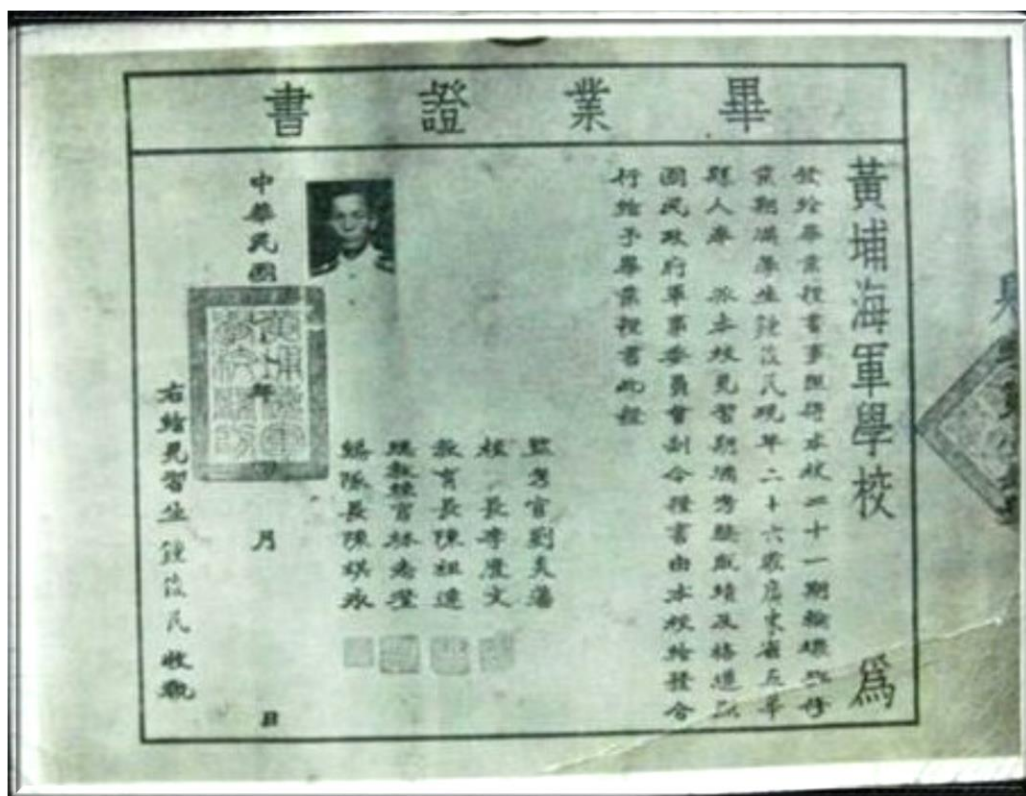 畢業證書
黃埔海軍學校 為
發給畢業證書事照得本校二十一期輪機班修
業期滿學生鍾俊民現年二十六歲廣東省五華
縣人奉 派本校見習期滿考驗成績及格遵照
國民政府軍事委員會副令證書由本校給發合
行給予畢業證書此證
監考官劉炎藩
校 長李慶文
教育長陳祖達
總教練官林
總隊長陳祺永
中華民國 年 月 日
右給見習生 鍾俊民 收執